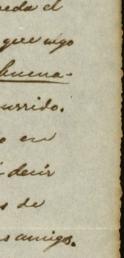 eda el
que algo
buena-
currido.
o en
decir
s de
s amigos.